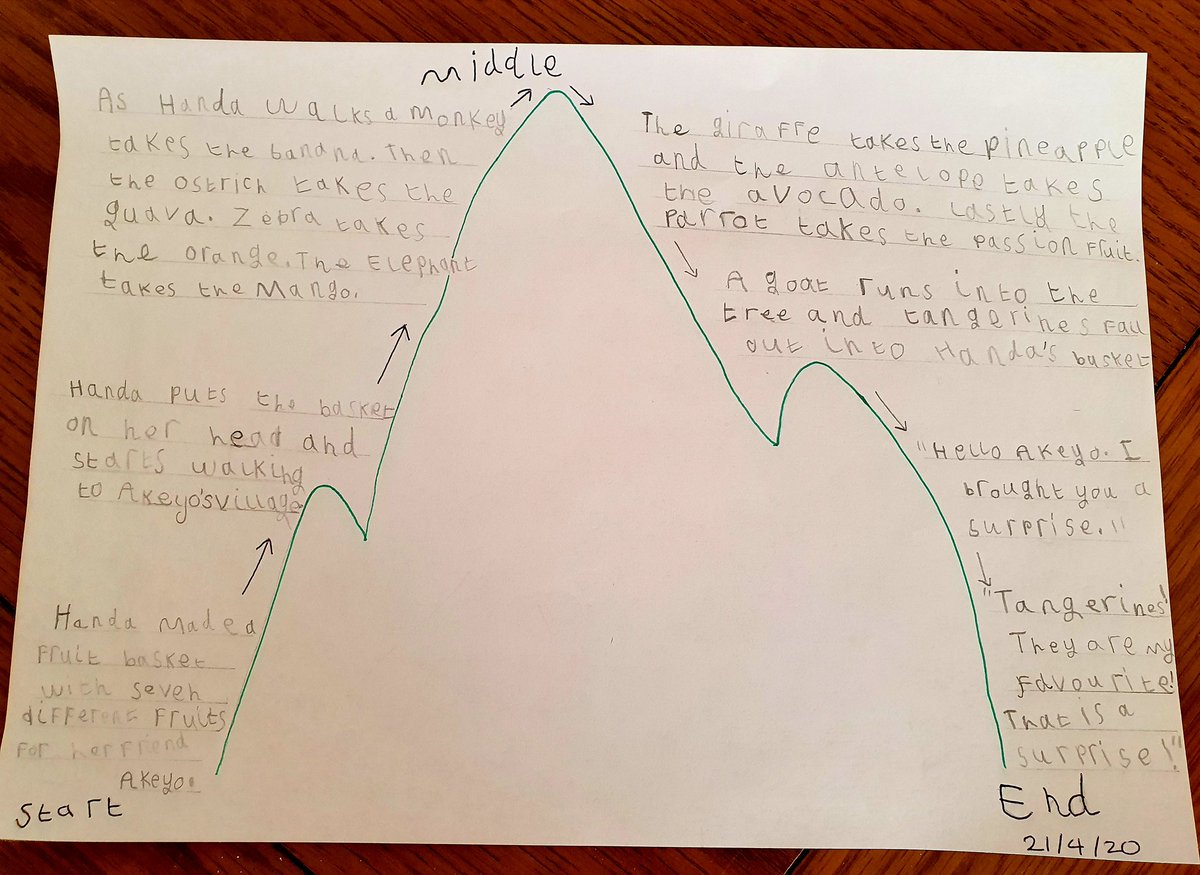 Start
Handa made a
fruit basket
with seven
different fruits
for her friend
Akeyo.
Handa puts the basket
on her head and
starts walking
to Akeyo's village
As Handa walks a monkey
takes the banana. Then
the ostrich takes the
guava. Zebra takes
the orange. The Elephant
takes the Mango.
middle
The giraffe takes the pineapple
and the antelope takes
the avocado. Lastly the
parrot takes the passion fruit.
A goat runs into the
tree and tangerines fall
out into Handa's basket
"Hello Akeyo. I
brought you a
surprise."
"Tangerines!
They are my
favourite!
That is a
surprise!"
End
21/4/20